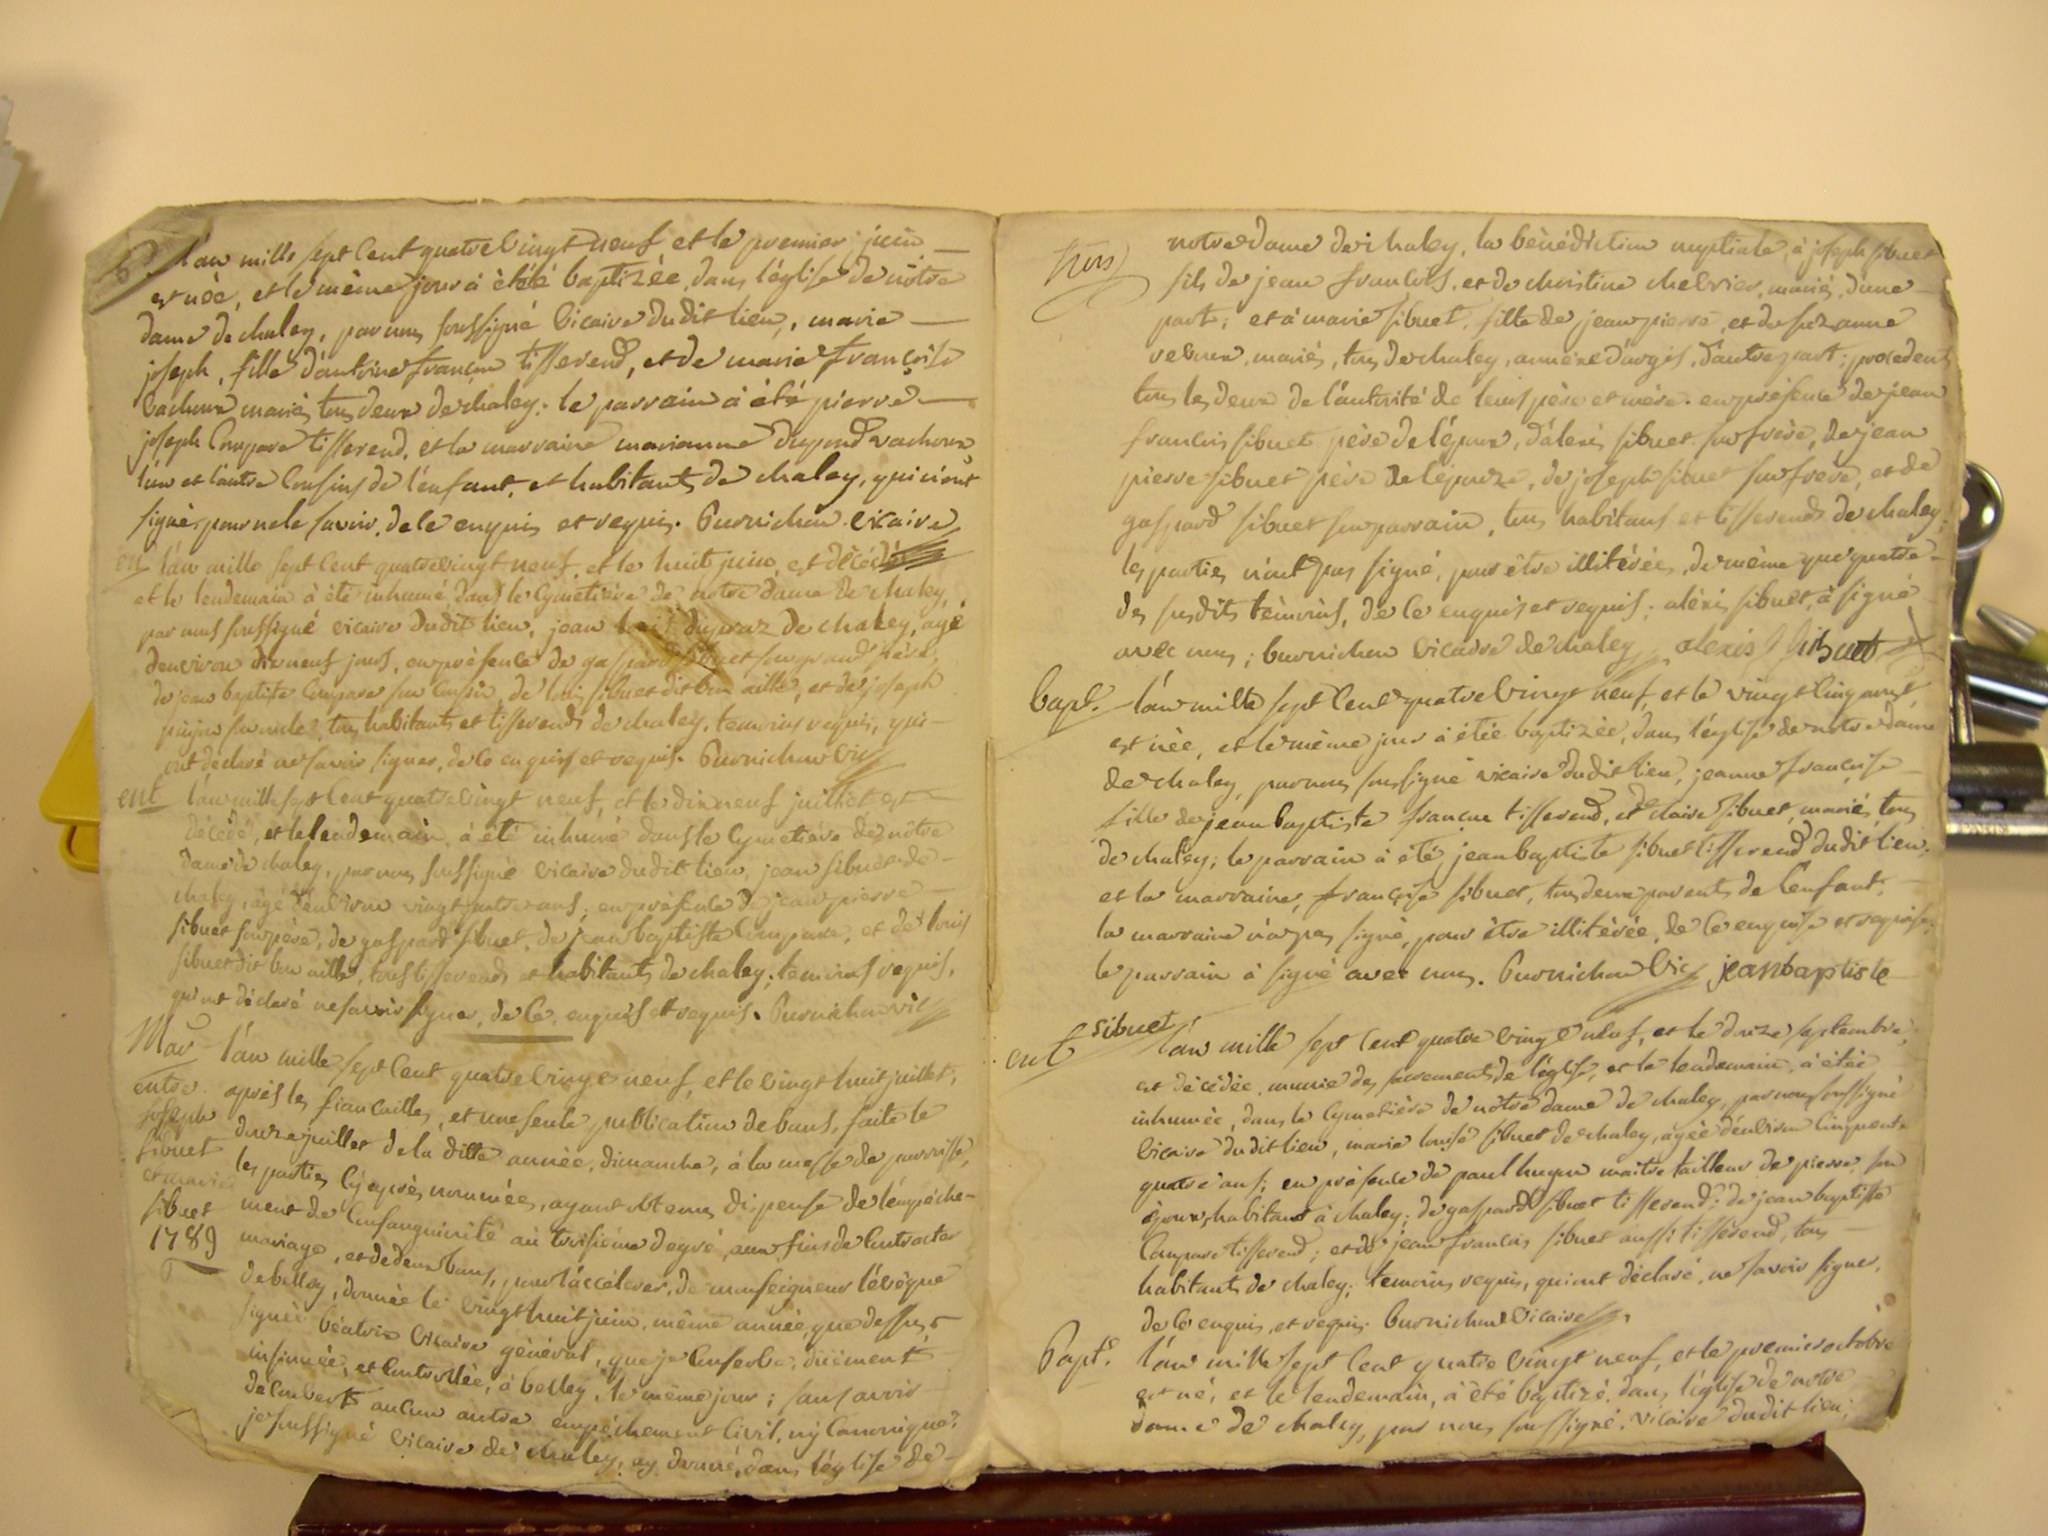 b l'an mille sept cent quatre vingt neuf et le premier juin
est née, et le même jour à étéé baptizée, dans l'église de nôtre
dame de chaley, par nous soussigné vicaire dudit lieu, marie
joseph, fille d'antoine françon tisserend, et de marie françoise
vachoux mariés, tous deux de chaley. le parrain à été pierre
joseph Compare tisserend, et la marraine marianne dupond vachoux
l'un et l'autre cousins de l'enfant, et habitants de chaley, qui n'ont
signés, pour ne le savoir, de ce enquis et requis. Burnichon vicaire
ent l'an mille sept cent quatre vingt neuf, et le huit juin, est décédé
et le lendemain à été inhumé, dans le cymetière de notre dame de chaley,
par nous soussigné vicaire dudit lieu, jean dupraz de chaley, agé
d'environ dix neuf jours, en présence de gaspard sibuet son grand père,
de jean baptiste Compare son cousin, de louis sibuet dit bon aillé, et de joseph
tous habitants et tisserends de chaley, temoins requis, qui
ont déclaré ne savoir signer, de ce enquis et requis. Burnichon vic
ent l'an mille sept cent quatre vingt neuf, et le dix neuf juillet est
décédé, et le lendemain, à été inhumé dans le cymetière de nôtre
dame de chaley, par nous soussigné vicaire dudit lieu, jean sibuet de
chaley, âgé d'environ vingt quatre ans; en présence de jean pierre
sibuet son père, de gaspard sibuet, de jean baptiste Compare, et de louis
sibuet dit bon aillé, tous tisserends et habitants de chaley; temoins requis,
qui ont déclaré ne savoir signer, de ce enquis et requis. Burnichon vic
Mar l'an mille sept cent quatre vingt neuf, et le vingt huit juillet,
entre après les fiançailles, et une seule publication de bans, faite le
joseph douze juillet de la ditte année, dimanche, à la messe de parroisse,
sibuet les parties cy après nommées, ayant obtenu dispense de l'empêche-
et marie ment de consanguinité au troisième degré, aux fins de contracter
sibuet mariage, et de deux bans, pour l'accélerer, de monseigneur l'évêque
1789 de belley, donnée le vingt huit juin, même année que dessus
signée béatrix vicaire général, que je conserve, duëment
insinuée, et controllée, à belley, le même jour; sans avoir
découvert aucun autre empêchement civil, ny canonique,
je soussigné vicaire de chaley, ay donné, dans l'église de
trois notre dame de chaley, la bénédiction nuptiale, à joseph sibuet
fils de jean francois, et de christine chevrier, mariés, d'une
part; et à marie sibuet, fille de jean pierre, et de suzanne
mariés, tous de chaley, annèxe d'argis, d'autre part; procedents
tous les deux de l'autorité de leurs père et mère. en présence de jean
francois sibuet père de l'époux, d'alexis sibuet son frère, de jean
pierre sibuet père de l'épouze, de joseph sibuet son frere, et de
gaspard sibuet son parrain, tous habitans et tisserends de chaley;
les parties n'ont pas signé, pour être illitérées, de même que quatre
des susdits témoins, de ce enquis et requis; aléxis sibuet, à signé
avec nous; burnichon vicaire de chaley alexis sibuet
bapt. l'an mille sept cent quatre vingt neuf, et le vingt cinq aoust
est née, et le même jour à étéé baptizée, dans l'église de notre dâme
de chaley, par nous soussigné vicaire dudit lieu, jeanne françoise
fille de jean baptiste françon tisserend, et de claire sibuet, mariés, tous
de chaley; le parrain à été jean baptiste sibuet tisserend dudit lieu;
et la marraine, françoise sibuet, tous deux parents de l'enfant.
la marraine n'a pas signé, pour être illitérée, de ce enquise et requise;
le parrain à signé avec nous. Burnichon vic jeanbaptiste
sibuet
ent l'an mille sept cent quatre vingt neuf, et le douze septembre,
est décédée, munie des sacrements de l'église, et le lendemain, à étéé
inhumée, dans le cymetière de nôtre dame de chaley, par nous soussigné
vicaire dudit lieu, marie louise sibuet de chaley, agée d'environ cinquante
quatre ans; en présence de paul hugon maitre tailleur de pierre, son
époux, habitant à chaley; de gaspard sibuet tisserend; de jean baptiste
Compare tisserend; et de jean francois sibuet aussi tisserend, tous
habitants de chaley; temoins requis, qui ont déclaré, ne savoir signer,
de ce enquis, et requis. burnichon vicaire.
Bapt.e l'an mille sept cent quatre vingt neuf, et le premier octobre
est né, et le lendemain, à été baptizé, dans l'église de notre
dame de chaley, par nous soussigné, vicaire dudit lieu;